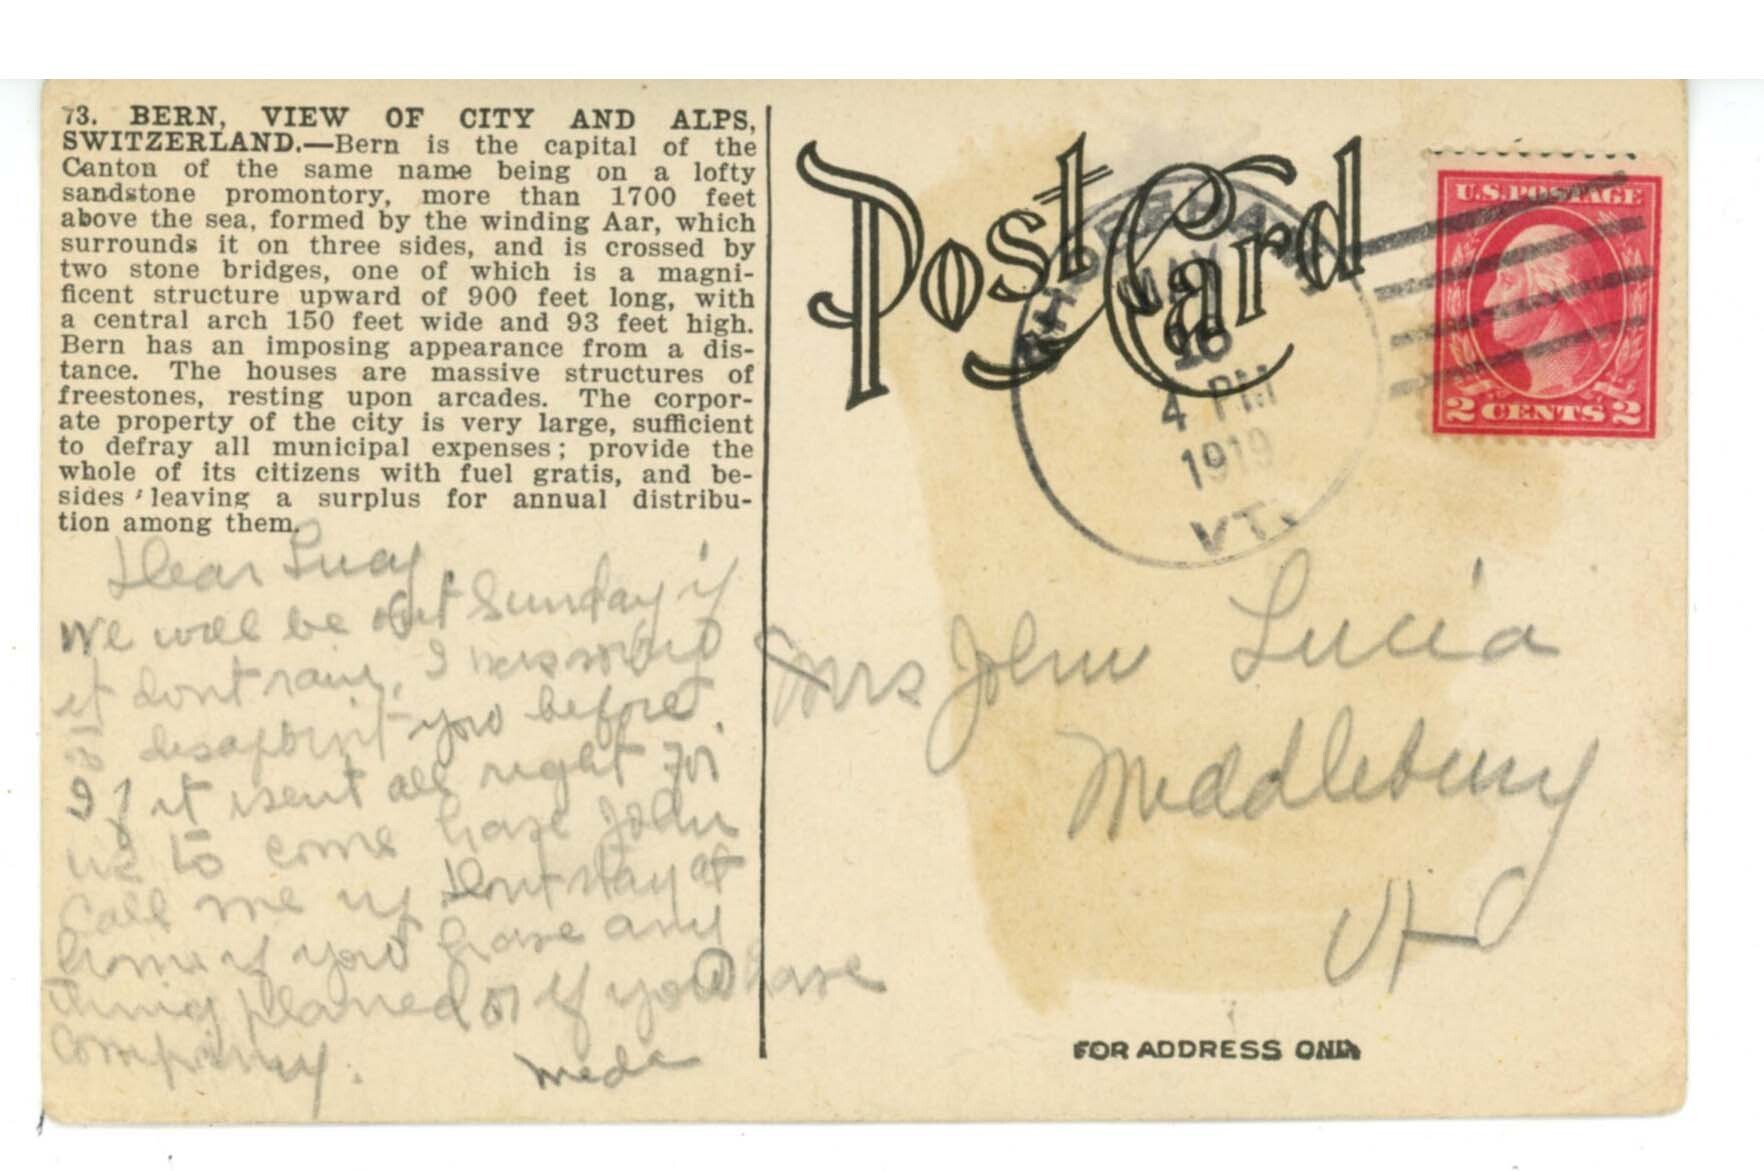 73. BERN, VIEW OF CITY AND ALPS,
SWITZERLAND.—Bern is the capital of the
Canton of the same name being on a lofty
sandstone promontory, more than 1700 feet
above the sea, formed by the winding Aar, which
surrounds it on three sides, and is crossed by
two stone bridges, one of which is a magni-
ficent structure upward of 900 feet long, with
a central arch 150 feet wide and 93 feet high.
Bern has an imposing appearance from a dis-
tance. The houses are massive structures of
freestones, resting upon arcades. The corpor-
ate property of the city is very large, sufficient
to defray all municipal expenses; provide the
whole of its citizens with fuel gratis, and be-
sides leaving a surplus for annual distribu-
tion among them.
Dear Lucy.
We will be out Sunday if
it dont rain, I was sorry
to disapoint you before.
If it isent all right for
us to come have John
call me up dont stay at
home if you have any
thing planed or if you have
company.
Meda
Post Card
MAY
16
4 PM
1919
VT.
U.S. POSTAGE
2 CENTS 2
Mrs John Lucia
Middlebury
Vt
FOR ADDRESS ONLY